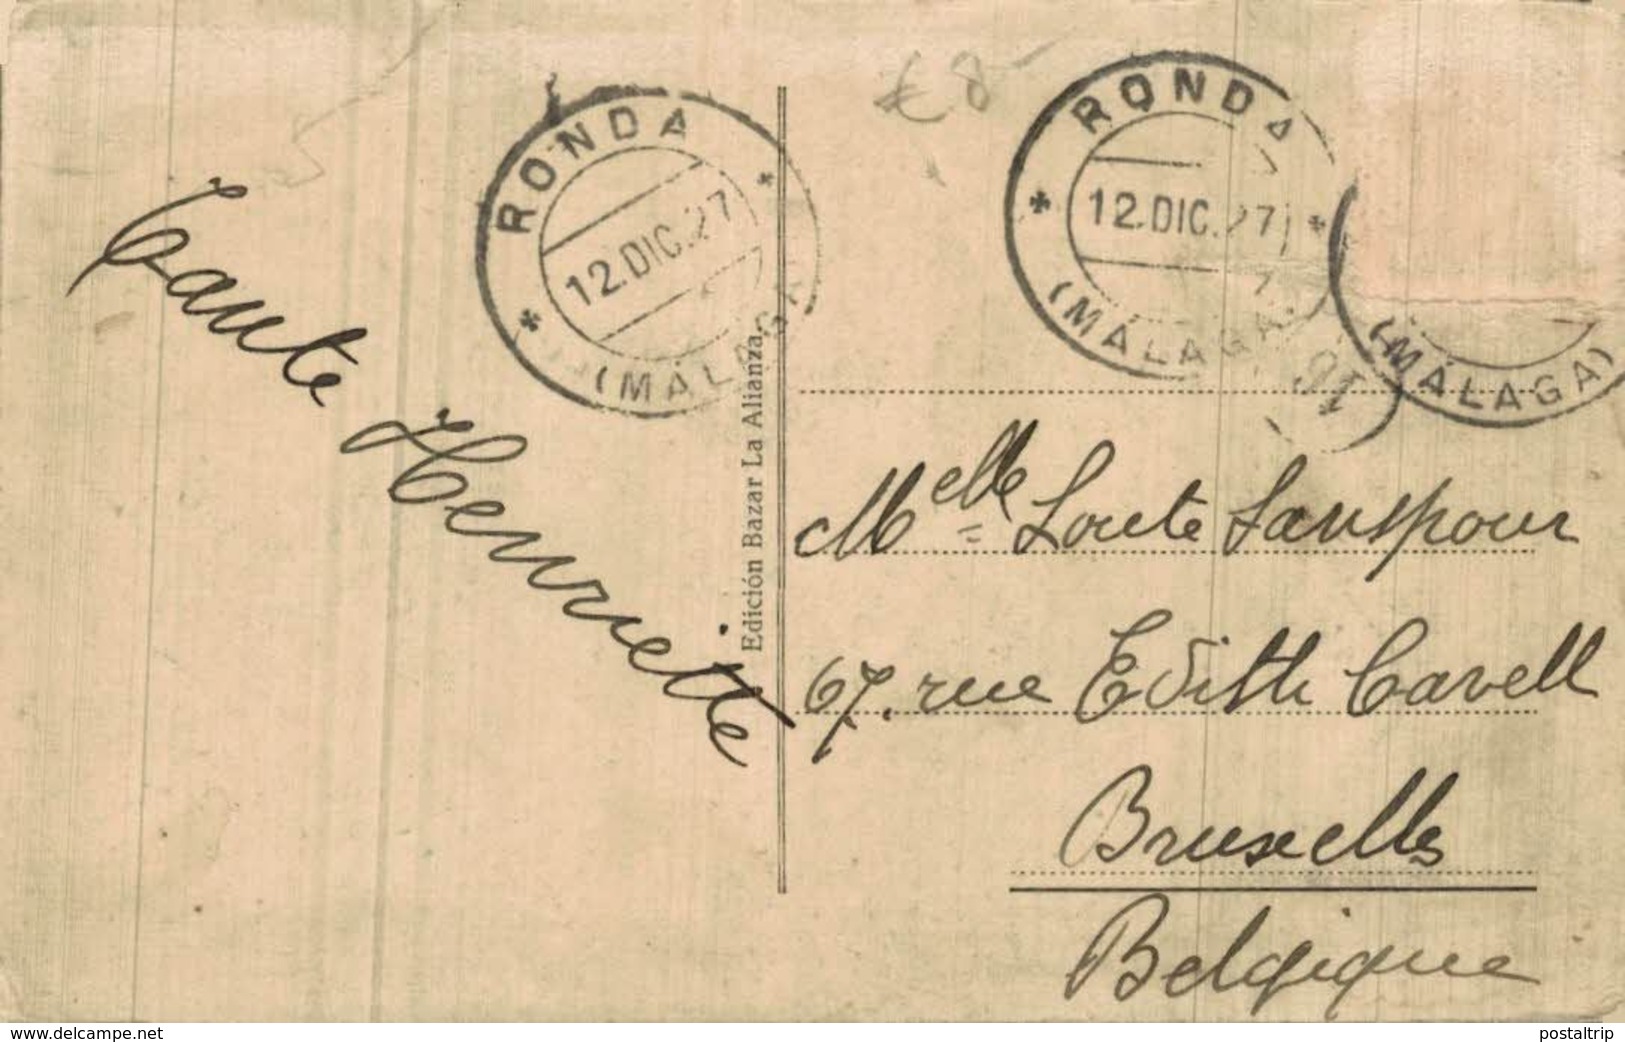 € 8-
RONDA
12.DIC.27
(MÁLAGA)
RONDA
12.DIC.27
(MÁLAGA)
(MÁLAGA)
Tante Henriette
Edición Bazar La Alianza.
Melle Loute Sauspour
67. rue Edith Cavell
Bruxelles
Belgique
www.delcampe.net
postaltrip